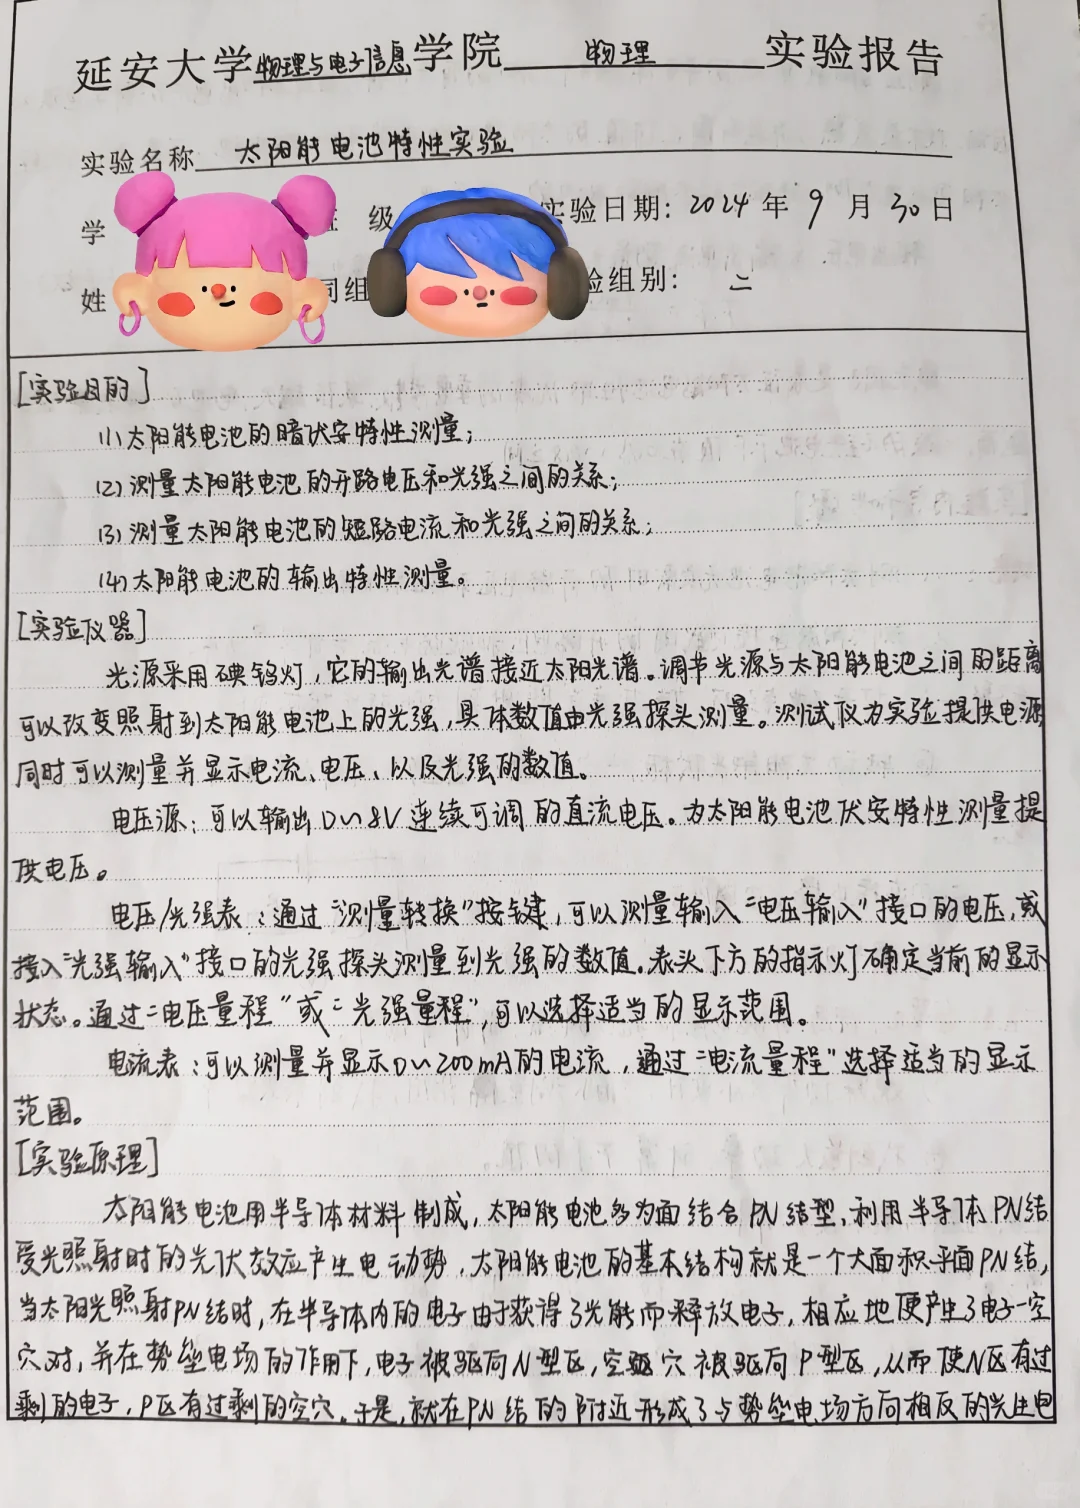 延安大学物理与电子信息学院 物理 实验报告
实验名称 太阳能电池特性实验
学 级 实验日期: 2024 年 9 月 30 日
姓 同组 验组别: 二
[实验目的]
(1) 太阳能电池的暗伏安特性测量;
(2) 测量太阳能电池的开路电压和光强之间的关系;
(3) 测量太阳能电池的短路电流和光强之间的关系;
(4) 太阳能电池的输出特性测量。
[实验仪器]
光源采用碘钨灯,它的输出光谱接近太阳光谱。调节光源与太阳能电池之间的距离
可以改变照射到太阳能电池上的光强,具体数值由光强探头测量。测试仪为实验提供电源
同时可以测量并显示电流、电压、以及光强的数值。
电压源:可以输出0~8V连续可调的直流电压。为太阳能电池伏安特性测量提
供电压。
电压/光强表:通过“测量转换”按键,可以测量输入“电压输入”接口的电压,或
接入“光强输入”接口的光强探头测量到光强的数值。表头下方的指示灯确定当前的显示
状态。通过“电压量程”或“光强量程”,可以选择适当的显示范围。
电流表:可以测量并显示0~200mA的电流,通过“电流量程”选择适当的显示
范围。
[实验原理]
太阳能电池用半导体材料制成,太阳能电池多为面结合PN结型,利用半导体PN结
受光照射时的光伏效应产生电动势,太阳能电池的基本结构就是一个大面积平面PN结,
当太阳光照射PN结时,在半导体内的电子由于获得了光能而释放电子,相应地便产生了电子—空
穴对,并在势垒电场的作用下,电子被驱向N型区,空穴被驱向P型区,从而使N区有过
剩的电子,P区有过剩的空穴。于是,就在PN结的附近形成了与势垒电场方向相反的光生电